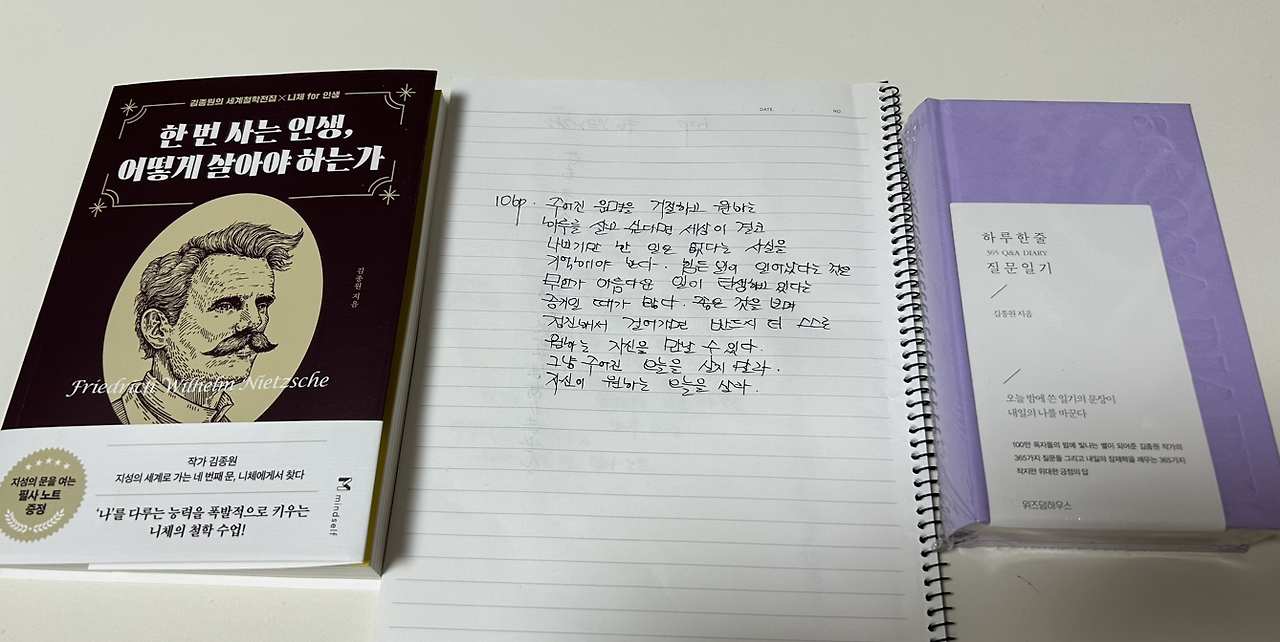 김종원의 세계철학전집×니체 for 인생
한 번 사는 인생,
어떻게 살아야 하는가
김종원 지음
Friedrich Wilhelm Nietzsche
작가 김종원
지성의 세계로 가는 네 번째 문, 니체에게서 찾다
지성의 문을 여는
필사 노트
증정
'나'를 다루는 능력을 폭발적으로 키우는
니체의 철학 수업!
mindself
DATE. NO.
106p. 주어진 운명을 거절하고 원하는
하루를 살고 싶다면 세상이 결코
나쁘기만 한 일은 없다는 사실을
기억해야 한다. 힘든 일이 일어났다는 것은
무언가 아름다운 일이 탄생하고 있다는
증거일 때가 많다. 좋은 것을 보며
전진해서 걸어가면 반드시 더 스스로
원하는 자신을 만날 수 있다.
그냥 주어진 오늘을 살지 말라.
자신이 원하는 오늘을 살라.
하루 한 줄
365 Q&A DIARY
질문 일기
김종원 지음
오늘 밤에 쓴 일기의 문장이
내일의 나를 바꾼다
100만 독자들의 밤에 빛나는 별이 되어준 김종원 작가의
365가지 질문들 그리고 내일의 잠재력을 깨우는 365가지
작지만 위대한 긍정의 답
위즈덤하우스